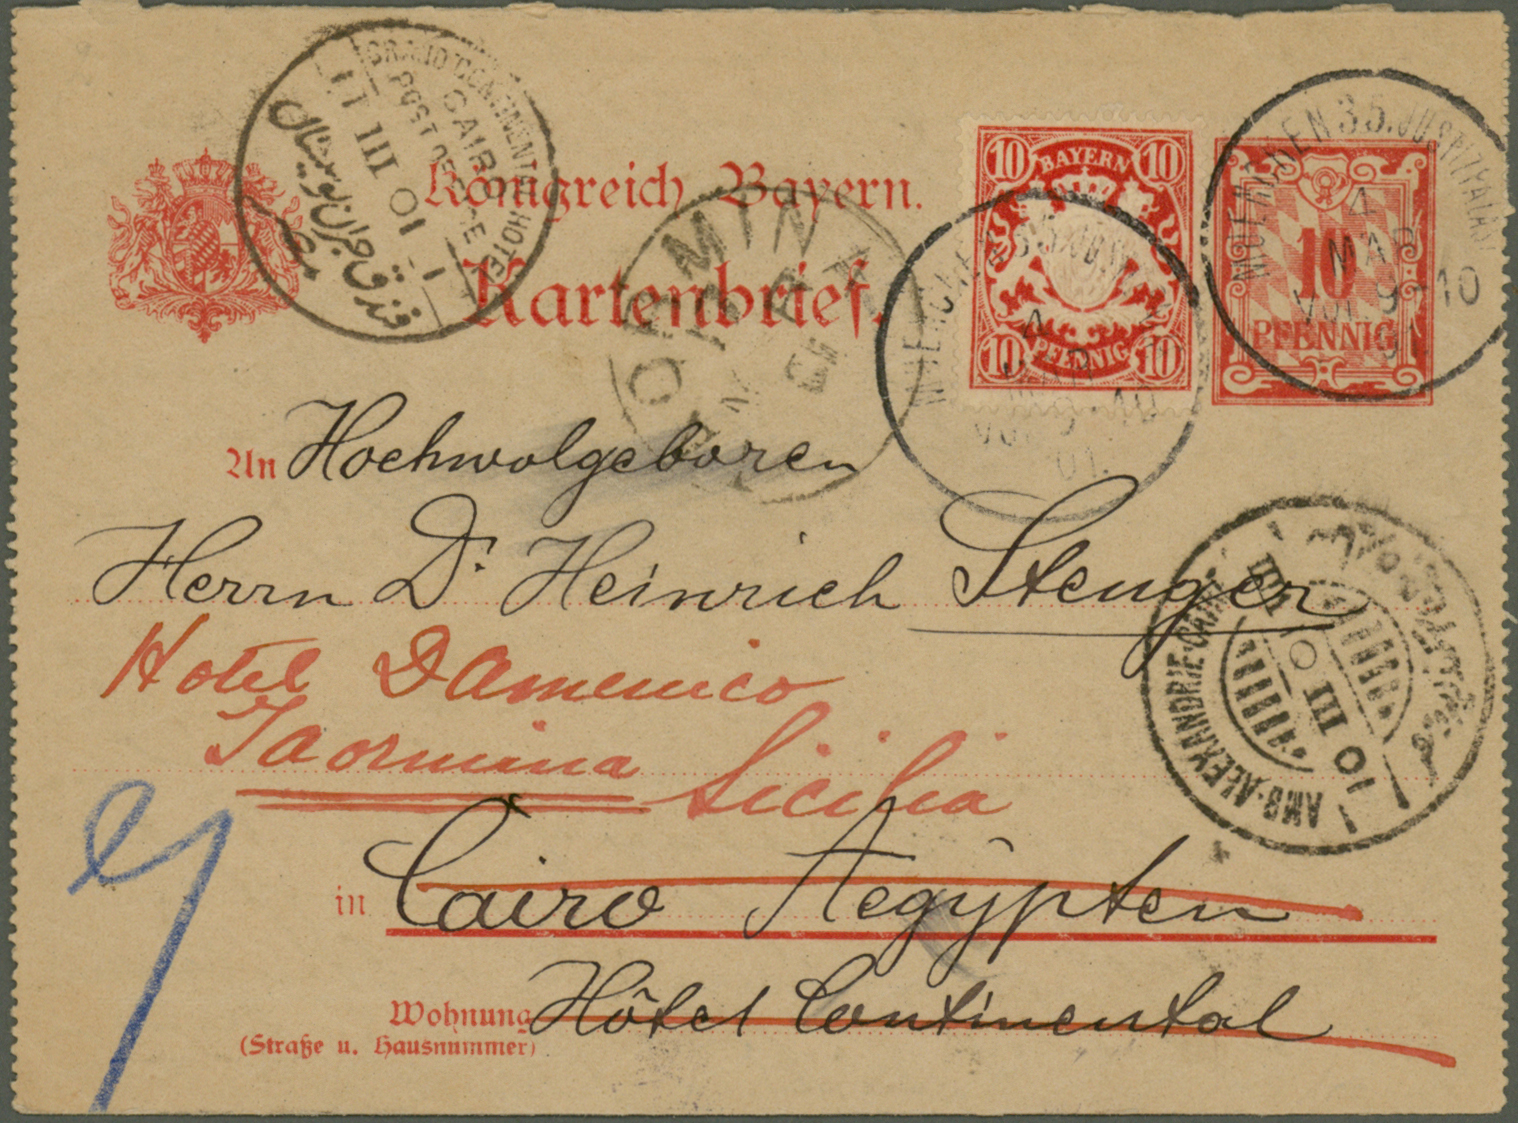 GRAND CONTINENTAL HOTEL
CAIRO
POST OFFICE
11 III 01
Königreich Bayern.
Kartenbrief.
10 BAYERN 10
10 PFENNIG 10
10
PFENNIG
MUENCHEN 35. JUSTIZPALAST
4
MAR
VOR. 9-10
01
MUENCHEN 35
4
MAR
VOR. 9-10
01.
TAORMINA
An Hochwolgeboren
Herrn Dr. Heinrich Stenger
Hotel Damenico
Taormina Sicilia
AMB-ALEXANDRIE-CAIRE
10 III 01
in Cairo Aegÿpten
Wohnung Hôtel Continental
(Straße u. Hausnummer)